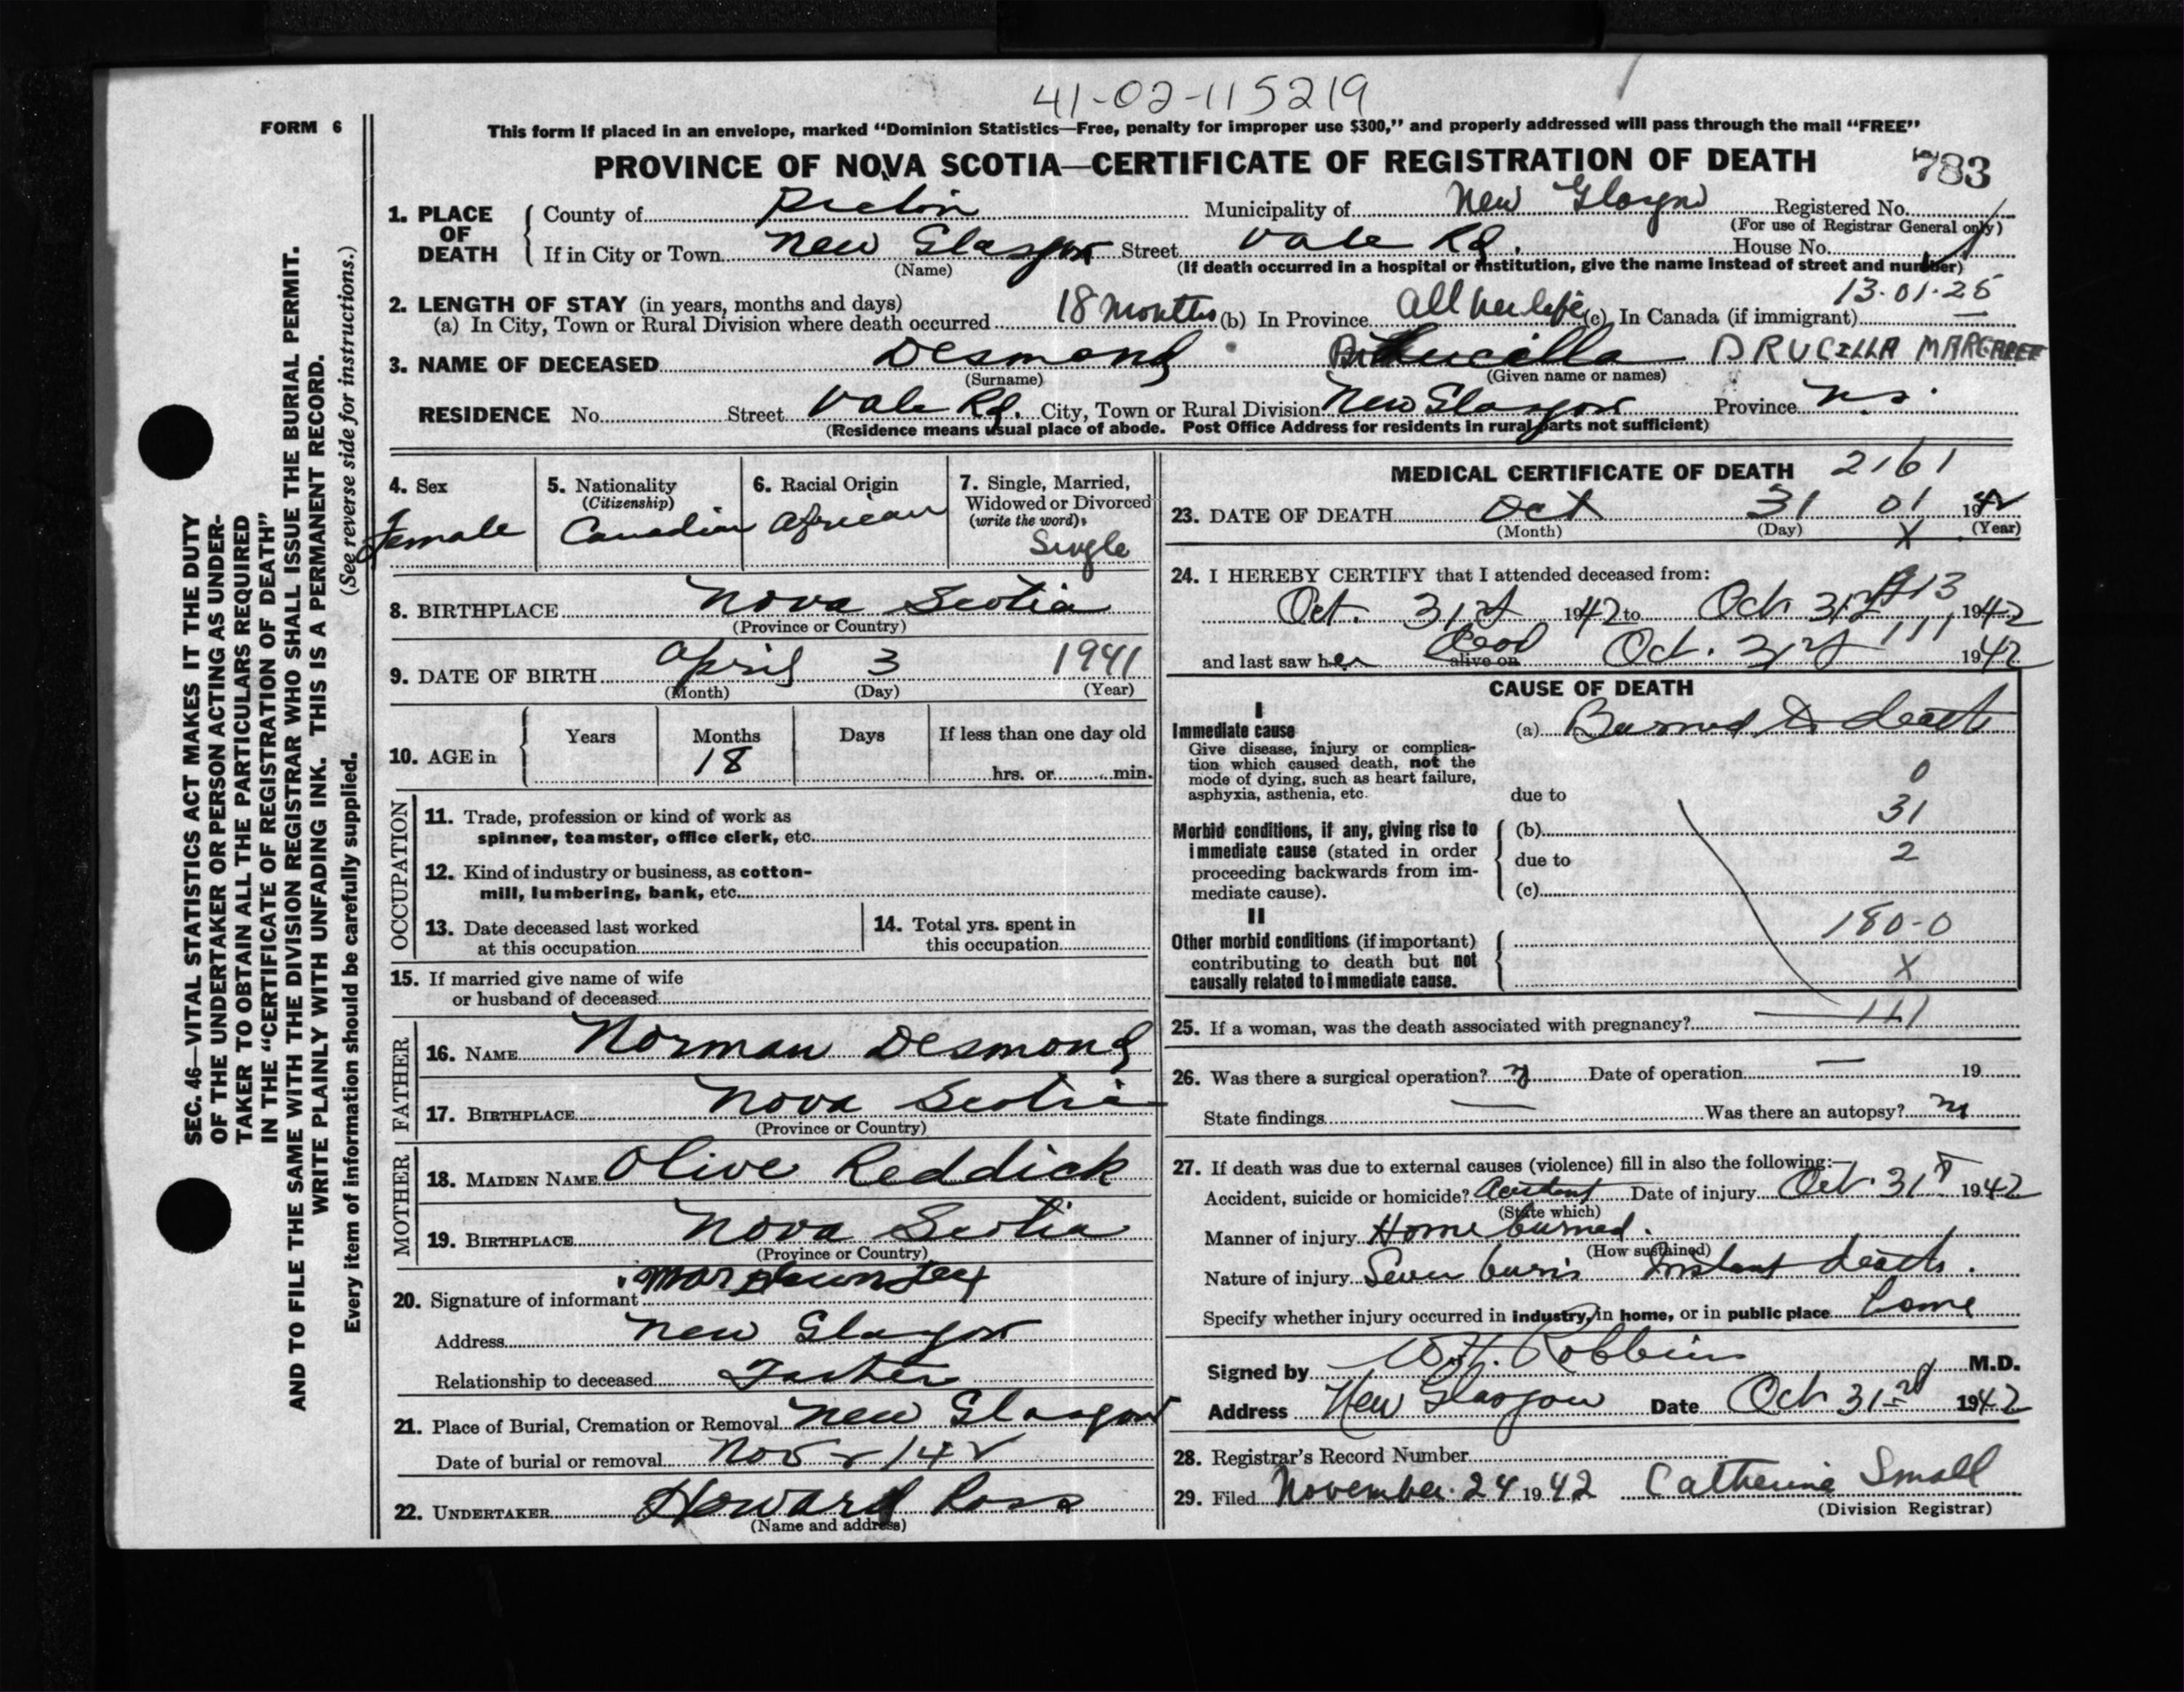 41-02-115219
FORM 6
This form if placed in an envelope, marked "Dominion Statistics—Free, penalty for improper use $300," and properly addressed will pass through the mail "FREE"
PROVINCE OF NOVA SCOTIA—CERTIFICATE OF REGISTRATION OF DEATH 783
1. PLACE OF DEATH
County of Pictou Municipality of New Glasgow Registered No.
(For use of Registrar General only)
If in City or Town New Glasgow Street Vale Rd. House No.
(Name) (If death occurred in a hospital or institution, give the name instead of street and number)
13-01-25
2. LENGTH OF STAY (in years, months and days)
(a) In City, Town or Rural Division where death occurred 18 months (b) In Province All her life (c) In Canada (if immigrant) —
3. NAME OF DECEASED Desmond Drucilla DRUCILLA MARGARET
(Surname) (Given name or names)
RESIDENCE No. Street Vale Rd. City, Town or Rural Division New Glasgow Province N.S.
(Residence means usual place of abode. Post Office Address for residents in rural parts not sufficient)
4. Sex Female
5. Nationality (Citizenship) Canadian
6. Racial Origin African
7. Single, Married, Widowed or Divorced (write the word) Single
8. BIRTHPLACE Nova Scotia
(Province or Country)
9. DATE OF BIRTH April 3 1941
(Month) (Day) (Year)
10. AGE in Years Months 18 Days If less than one day old hrs. or min.
OCCUPATION
11. Trade, profession or kind of work as spinner, teamster, office clerk, etc.
12. Kind of industry or business, as cotton-mill, lumbering, bank, etc.
13. Date deceased last worked at this occupation
14. Total yrs. spent in this occupation
15. If married give name of wife or husband of deceased
FATHER
16. NAME Norman Desmond
17. BIRTHPLACE Nova Scotia
(Province or Country)
MOTHER
18. MAIDEN NAME Olive Reddick
19. BIRTHPLACE Nova Scotia
(Province or Country)
20. Signature of informant
Address New Glasgow
Relationship to deceased
21. Place of Burial, Cremation or Removal New Glasgow
Date of burial or removal Nov 2/42
22. UNDERTAKER Howard Ross
(Name and address)
MEDICAL CERTIFICATE OF DEATH 2161
23. DATE OF DEATH Oct 31 01 1942
(Month) (Day) X (Year)
24. I HEREBY CERTIFY that I attended deceased from:
Oct. 31st 1942 to Oct. 31st 13 1942
and last saw her alive on Dead Oct. 31st 111 1942
CAUSE OF DEATH
I
Immediate cause
Give disease, injury or complication which caused death, not the mode of dying, such as heart failure, asphyxia, asthenia, etc.
(a) Burned to death
0
due to
31
Morbid conditions, if any, giving rise to immediate cause (stated in order proceeding backwards from immediate cause).
(b)
due to 2
(c)
II
180-0
Other morbid conditions (if important) contributing to death but not causally related to immediate cause.
X
25. If a woman, was the death associated with pregnancy? — 111
26. Was there a surgical operation? Date of operation — 19
State findings — Was there an autopsy?
27. If death was due to external causes (violence) fill in also the following:—
Accident, suicide or homicide? Accident Date of injury Oct. 31st 1942
(State which)
Manner of injury Home burned.
(How sustained)
Nature of injury burns Instant death.
Specify whether injury occurred in industry, in home, or in public place home
Signed by Robbins M.D.
Address New Glasgow Date Oct 31st 1942
28. Registrar's Record Number
29. Filed November 24 1942 Catherine Small
(Division Registrar)
SEC. 46—VITAL STATISTICS ACT MAKES IT THE DUTY
OF THE UNDERTAKER OR PERSON ACTING AS UNDER-
TAKER TO OBTAIN ALL THE PARTICULARS REQUIRED
IN THE "CERTIFICATE OF REGISTRATION OF DEATH"
AND TO FILE THE SAME WITH THE DIVISION REGISTRAR WHO SHALL ISSUE THE BURIAL PERMIT.
WRITE PLAINLY WITH UNFADING INK. THIS IS A PERMANENT RECORD.
Every item of information should be carefully supplied. (See reverse side for instructions.)